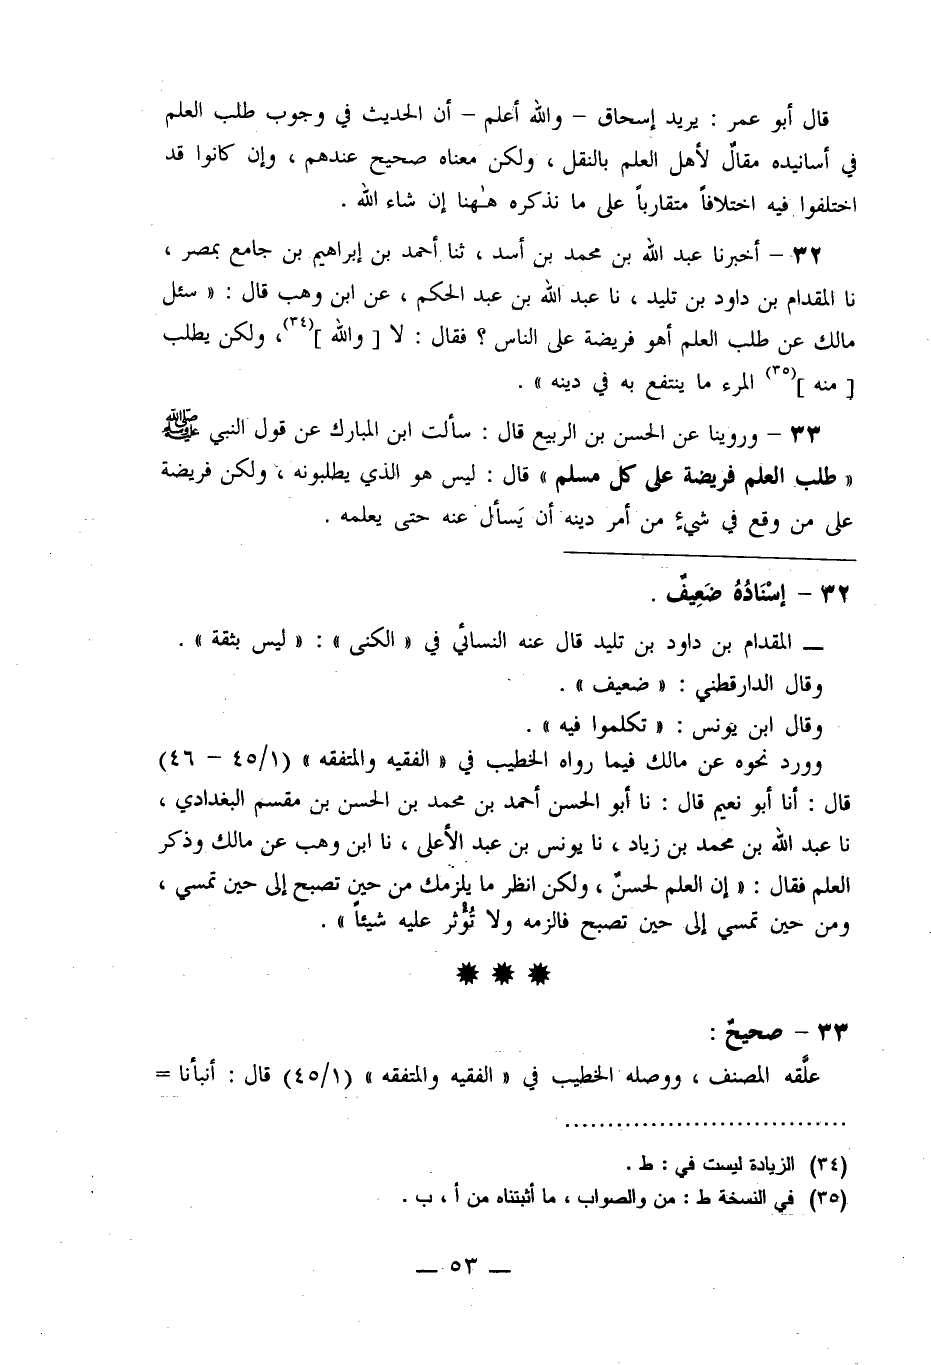 قال أبو عمر : يريد إسحاق – والله أعلم – أن الحديث في وجوب طلب العلم
في أسانيده مقالٌ لأهل العلم بالنقل ، ولكن معناه صحيح عندهم ، وإن كانوا قد
اختلفوا فيه اختلافاً متقارباً على ما نذكره هـٰهنا إن شاء الله .
٣٢ – أخبرنا عبد الله بن محمد بن أسد ، ثنا أحمد بن إبراهيم بن جامع بمصر ،
نا المقدام بن داود بن تليد ، نا عبد الله بن عبد الحكم ، عن ابن وهب قال : « سئل
مالك عن طلب العلم أهو فريضة على الناس ؟ فقال : لا [ والله ](٣٤)، ولكن يطلب
[ منه ](٣٥) المرء ما ينتفع به في دينه » .
٣٣ – وروينا عن الحسن بن الربيع قال : سألت ابن المبارك عن قول النبي ﷺ
« طلب العلم فريضة على كل مسلم » قال : ليس هو الذي يطلبونه ، ولكن فريضة
على من وقع في شيءٍ من أمر دينه أن يَسأل عنه حتى يعلمه .
٣٢ – إسْنَادُهُ ضَعِيفٌ .
— المقدام بن داود بن تليد قال عنه النسائي في « الكنى » : « ليس بثقة » .
وقال الدارقطني : « ضعيف » .
وقال ابن يونس : « تكلموا فيه » .
وورد نحوه عن مالك فيما رواه الخطيب في « الفقيه والمتفقه » (٤٥/١ – ٤٦)
قال : أنا أبو نعيم قال : نا أبو الحسن أحمد بن محمد بن الحسن بن مقسم البغدادي ،
نا عبد الله بن محمد بن زياد ، نا يونس بن عبد الأعلى ، نا ابن وهب عن مالك وذكر
العلم فقال : « إن العلم لحسنٌ ، ولكن انظر ما يلزمك من حين تصبح إلى حين تمسي ،
ومن حين تمسي إلى حين تصبح فالزمه ولا تُؤْثر عليه شيئاً » .
٣٣ – صحيحٌ :
علَّقه المصنف ، ووصله الخطيب في « الفقيه والمتفقه » (٤٥/١) قال : أنبأنا =
(٣٤) الزيادة ليست في : ط .
(٣٥) في النسخة ط : من والصواب ، ما أثبتناه من أ ، ب .
— ٥٣ —